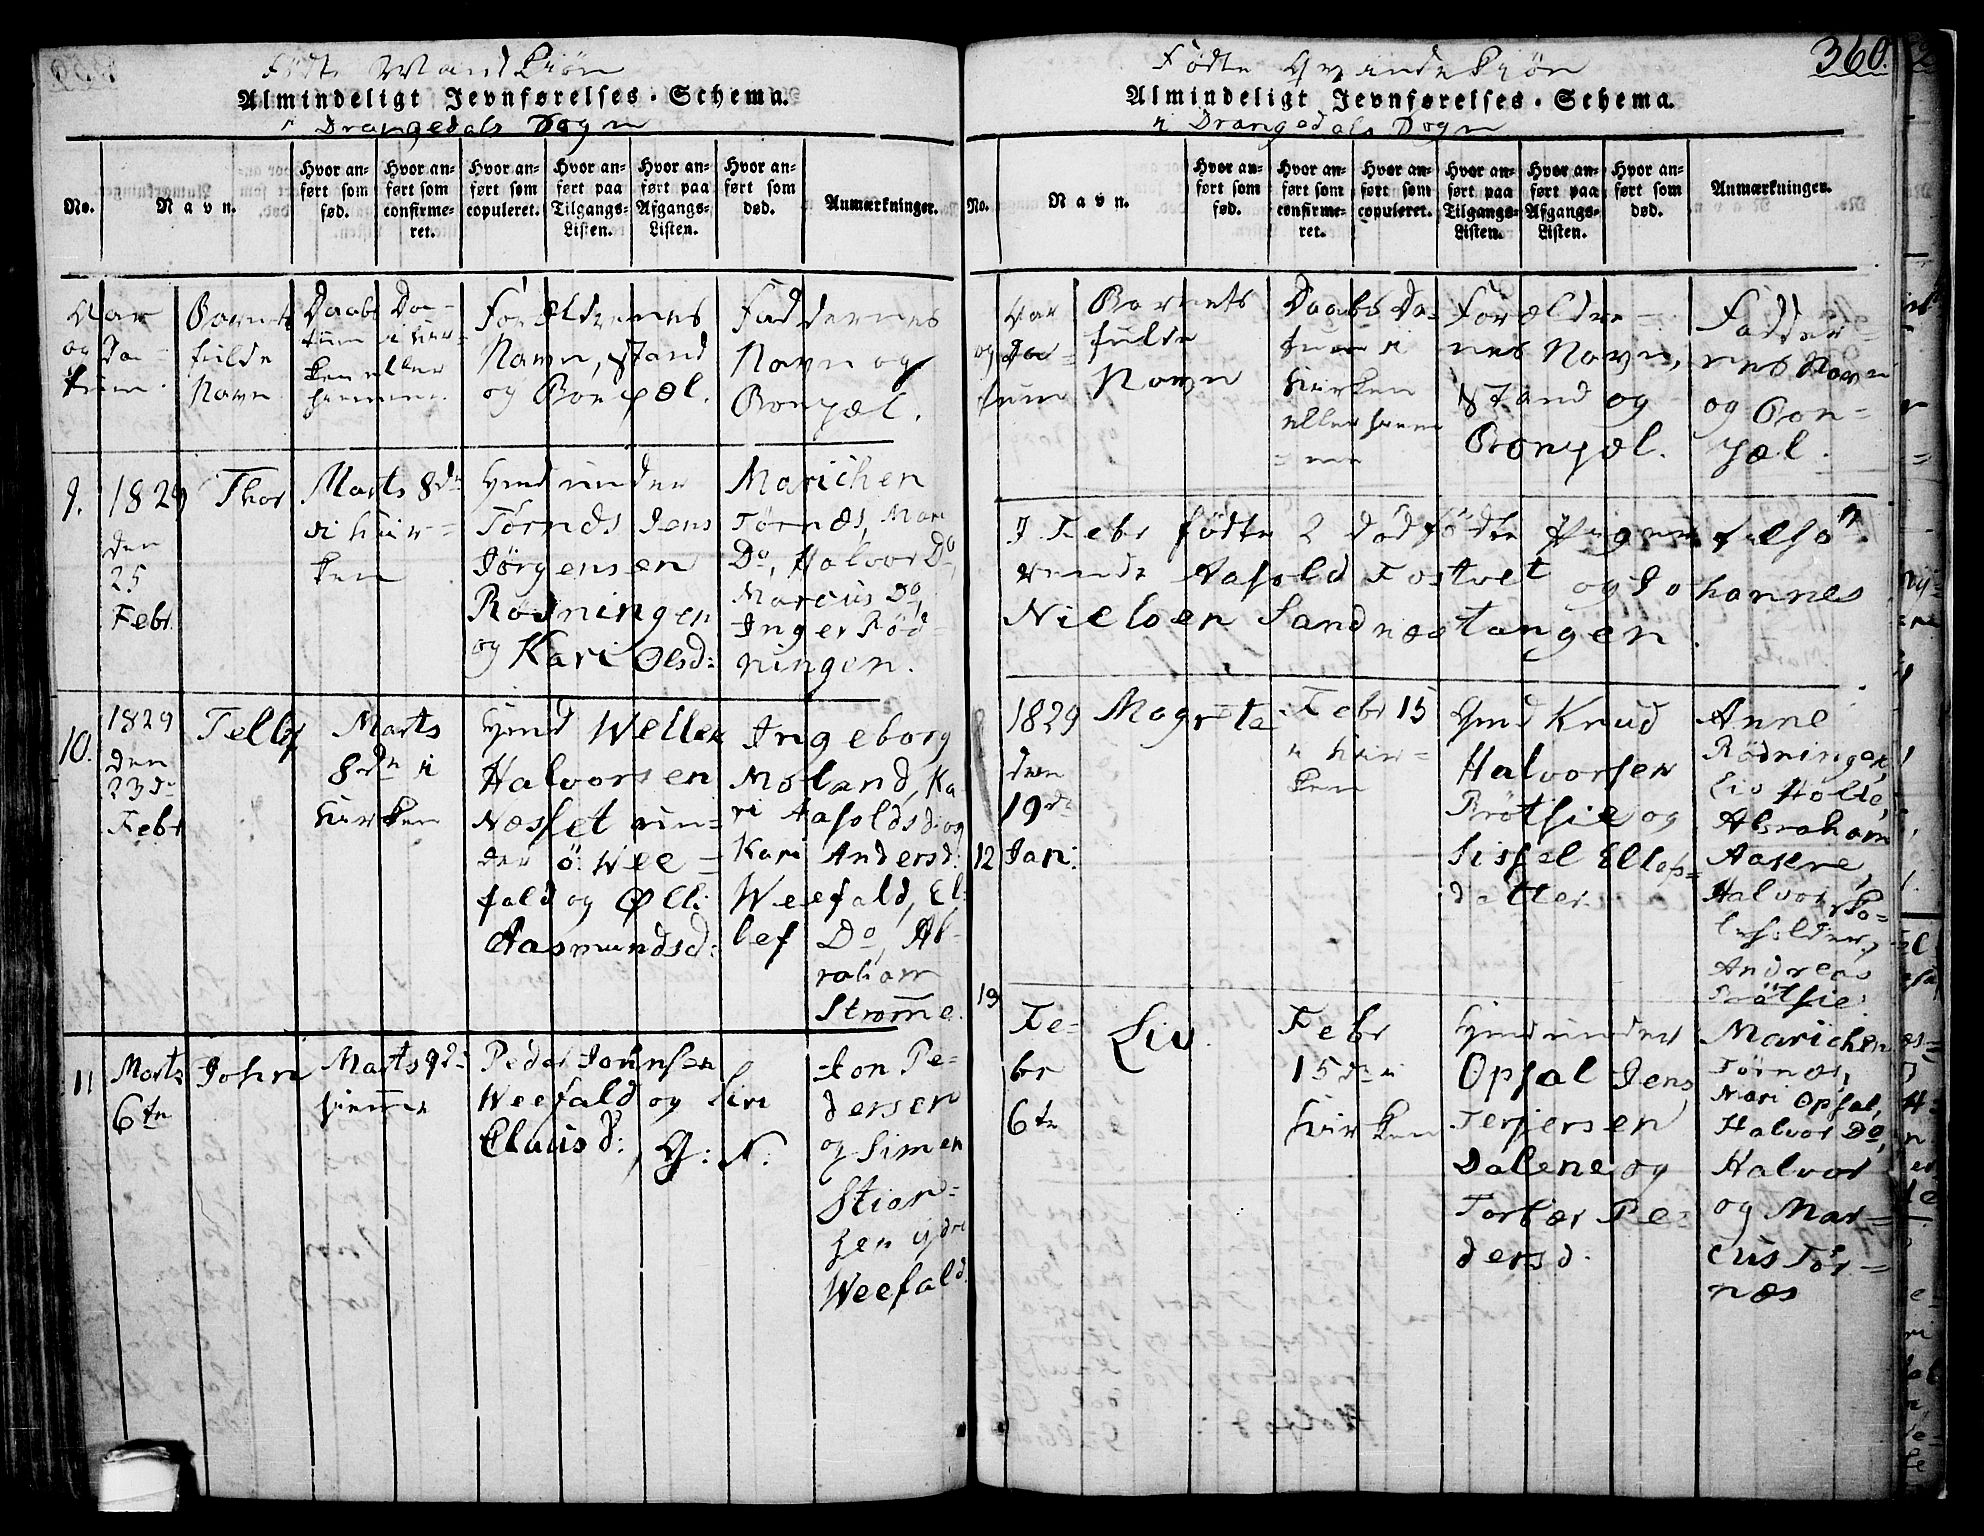 Født Mandkiøn
Almindeligt Jevnførelses-Schema.
i Drangedals Sogn
No.
Navn.
Hvor anført som fød.
Hvor anført som confirmeret.
Hvor anført som copuleret.
Hvor anført paa Tilgangs-Listen.
Hvor anført paa Afgangs-Listen.
Hvor anført som død.
Anmærkninger.
Aar
og Da-
tum
Barnets
fulde
Navn
Daabs Da-
tum i Kir-
ken eller
hiemme
Forældrenes
Navn, Stand
og Bopæl.
Faddernes
Navn og
Bopæl.
9.
1829
den
25
Febr.
Thor
Marts 8de
i Kir-
ken
Gmd under
Törnes Jens
Jörgensen
Rødningen
og Kari Olsd:
Marichen
Törnæs, Mari
Do, Halvor Do,
Marcus Do,
Inger Rød-
ningen.
10.
1829
den
23de
Febr
Tellef
Marts
8de i
Kirken
Gmd Wellek
Halvorsen
Næsset un-
der ö. Wee-
fald og Ølli
Aasmundsd:
Ingeborg
Moland, Ka
ri Aasoldsd: og
Kari Andersd:
Weefald, El-
lef Do, Ab-
raham
Stromme.
11
Marts
6te
John
Marts 9de
hiemme
Peder Johnsen
Weefald og Siri
Clausd: G: N.
Jon Pe-
dersen
og Simen
Stiar-
sen ydre
Weefald
360.
Fødte Qvindekiøn
Almindeligt Jevnførelses-Schema.
i Drangedals Sogn
No.
Navn.
Hvor anført som fød.
Hvor anført som confirmeret.
Hvor anført som copuleret.
Hvor anført paa Tilgangs-Listen.
Hvor anført paa Afgangs-Listen.
Hvor anført som død.
Anmærkninger.
Aar
og Da-
tum
Barnets
fulde
Navn
Daabs Da-
tum i
Kirken
eller hiem-
me
Forældre-
nes Navn,
Stand og
Bopæl.
Fadder-
nes Navn
og Bo-
pæl.
I Febr fødte 2 dödfödte Piger tilhö-
rende Aasold Tostvet og Johannes
Nielsen Sandnæstangen.
12
1829
den
19de
Jan:
Magrete
Febr 15
i Kir-
ken
Gmd Knud
Halvorsen
Bröthie og
Sissel Ellefs-
datter
Anne
Rödningen,
Liv Holte,
Abraham
Aasene,
Halvor
Andreas
Bröthie.
13
Fe-
br
6te
Liv
Febr
15de i
Kirken
Gmd under
Opsal Jens
Terjersen
Dalene og
Torbær Pe-
dersd.
Marichen
Törnes,
Mari Opsal,
Halvor Do,
Halvor
og Mar-
cus Tör-
næs